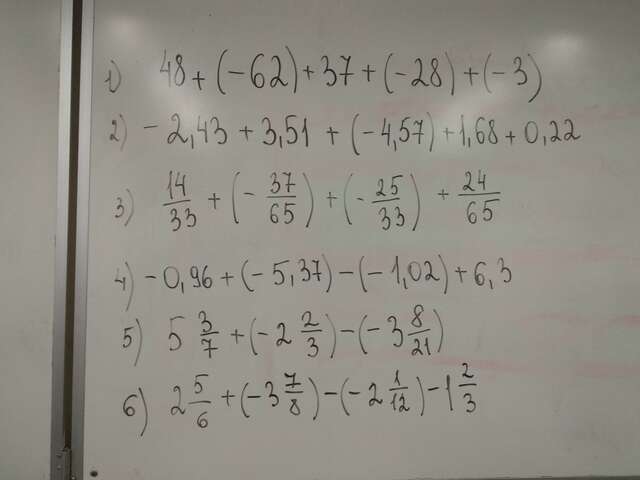 1) 48 + (-62) + 37 + (-28) + (-3)
2) - 2,43 + 3,51 + (-4,57) + 1,68 + 0,22
3) 14/33 + (- 37/65) + (- 25/33) + 24/65
4) - 0,96 + (- 5,37) - (- 1,02) + 6,3
5) 5 3/7 + (- 2 2/3) - (- 3 8/21)
6) 2 5/6 + (- 3 7/8) - (- 2 1/12) - 1 2/3